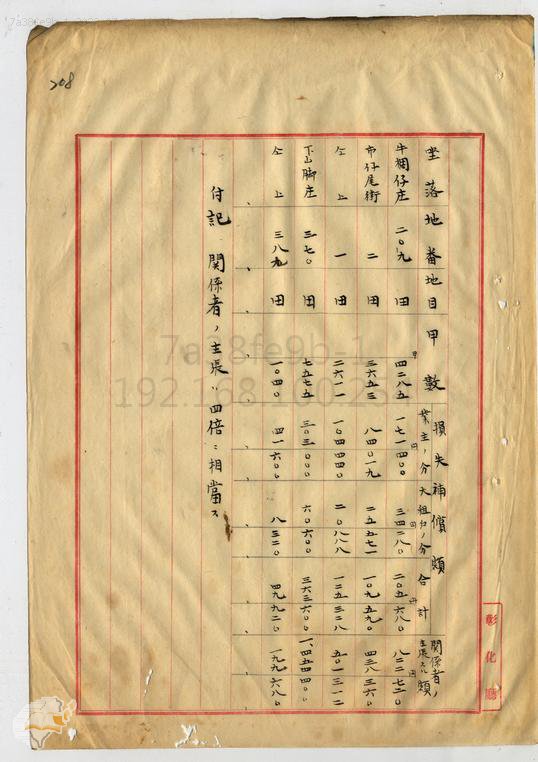 208
坐落 地番 地目 甲數 損失補償額
業主ノ分 大租戶ノ分 合計
關係者ノ
主張スル額
牛稠仔庄 二〇九 田 四二八五 一七一四〇〇 三四二八〇 二〇五六八〇 八二二七二〇
市仔尾街 二 田 三六五三 八四〇一九 二五五七一 一〇九五九〇 四三八三六〇
仝上 一 田 二六一一 一〇四四四〇 二〇八八八 一二五三二八 五〇一三一二
下山脚庄 三七〇 田 七五七五 三〇三〇〇〇 六〇六〇〇 三六三六〇〇 一、四五四四〇〇
仝上 三八九 田 一〇四〇 四一六〇〇 八三二〇 四九九二〇 一九九六八〇
付記 關係者ノ主張ハ四倍ニ相當ス
彰化廳
7a38fe9b-1